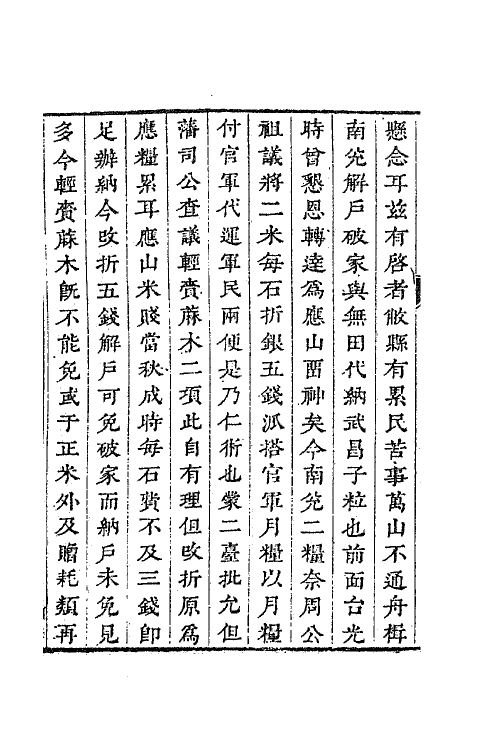 懸念耳茲有啓者敝縣有累民苦事萬山不通舟楫
南兊解戶破家與無田代納武昌子粒也前面台光
時曾懇恩轉達爲應山畱神矣今南兊二糧奈周公
祖議將二米每石折銀五錢派搭官軍月糧以月糧
付官軍代運軍民兩便是乃仁術也蒙二臺批允但
藩司公查議輕賫蔴木二項此自有理但改折原爲
應糧累耳應山米賤當秋成時每石費不及三錢卽
足辦納今改折五錢解戶可免破家而納戶未免見
多今輕賫蔴木旣不能免或于正米外及贍耗類再